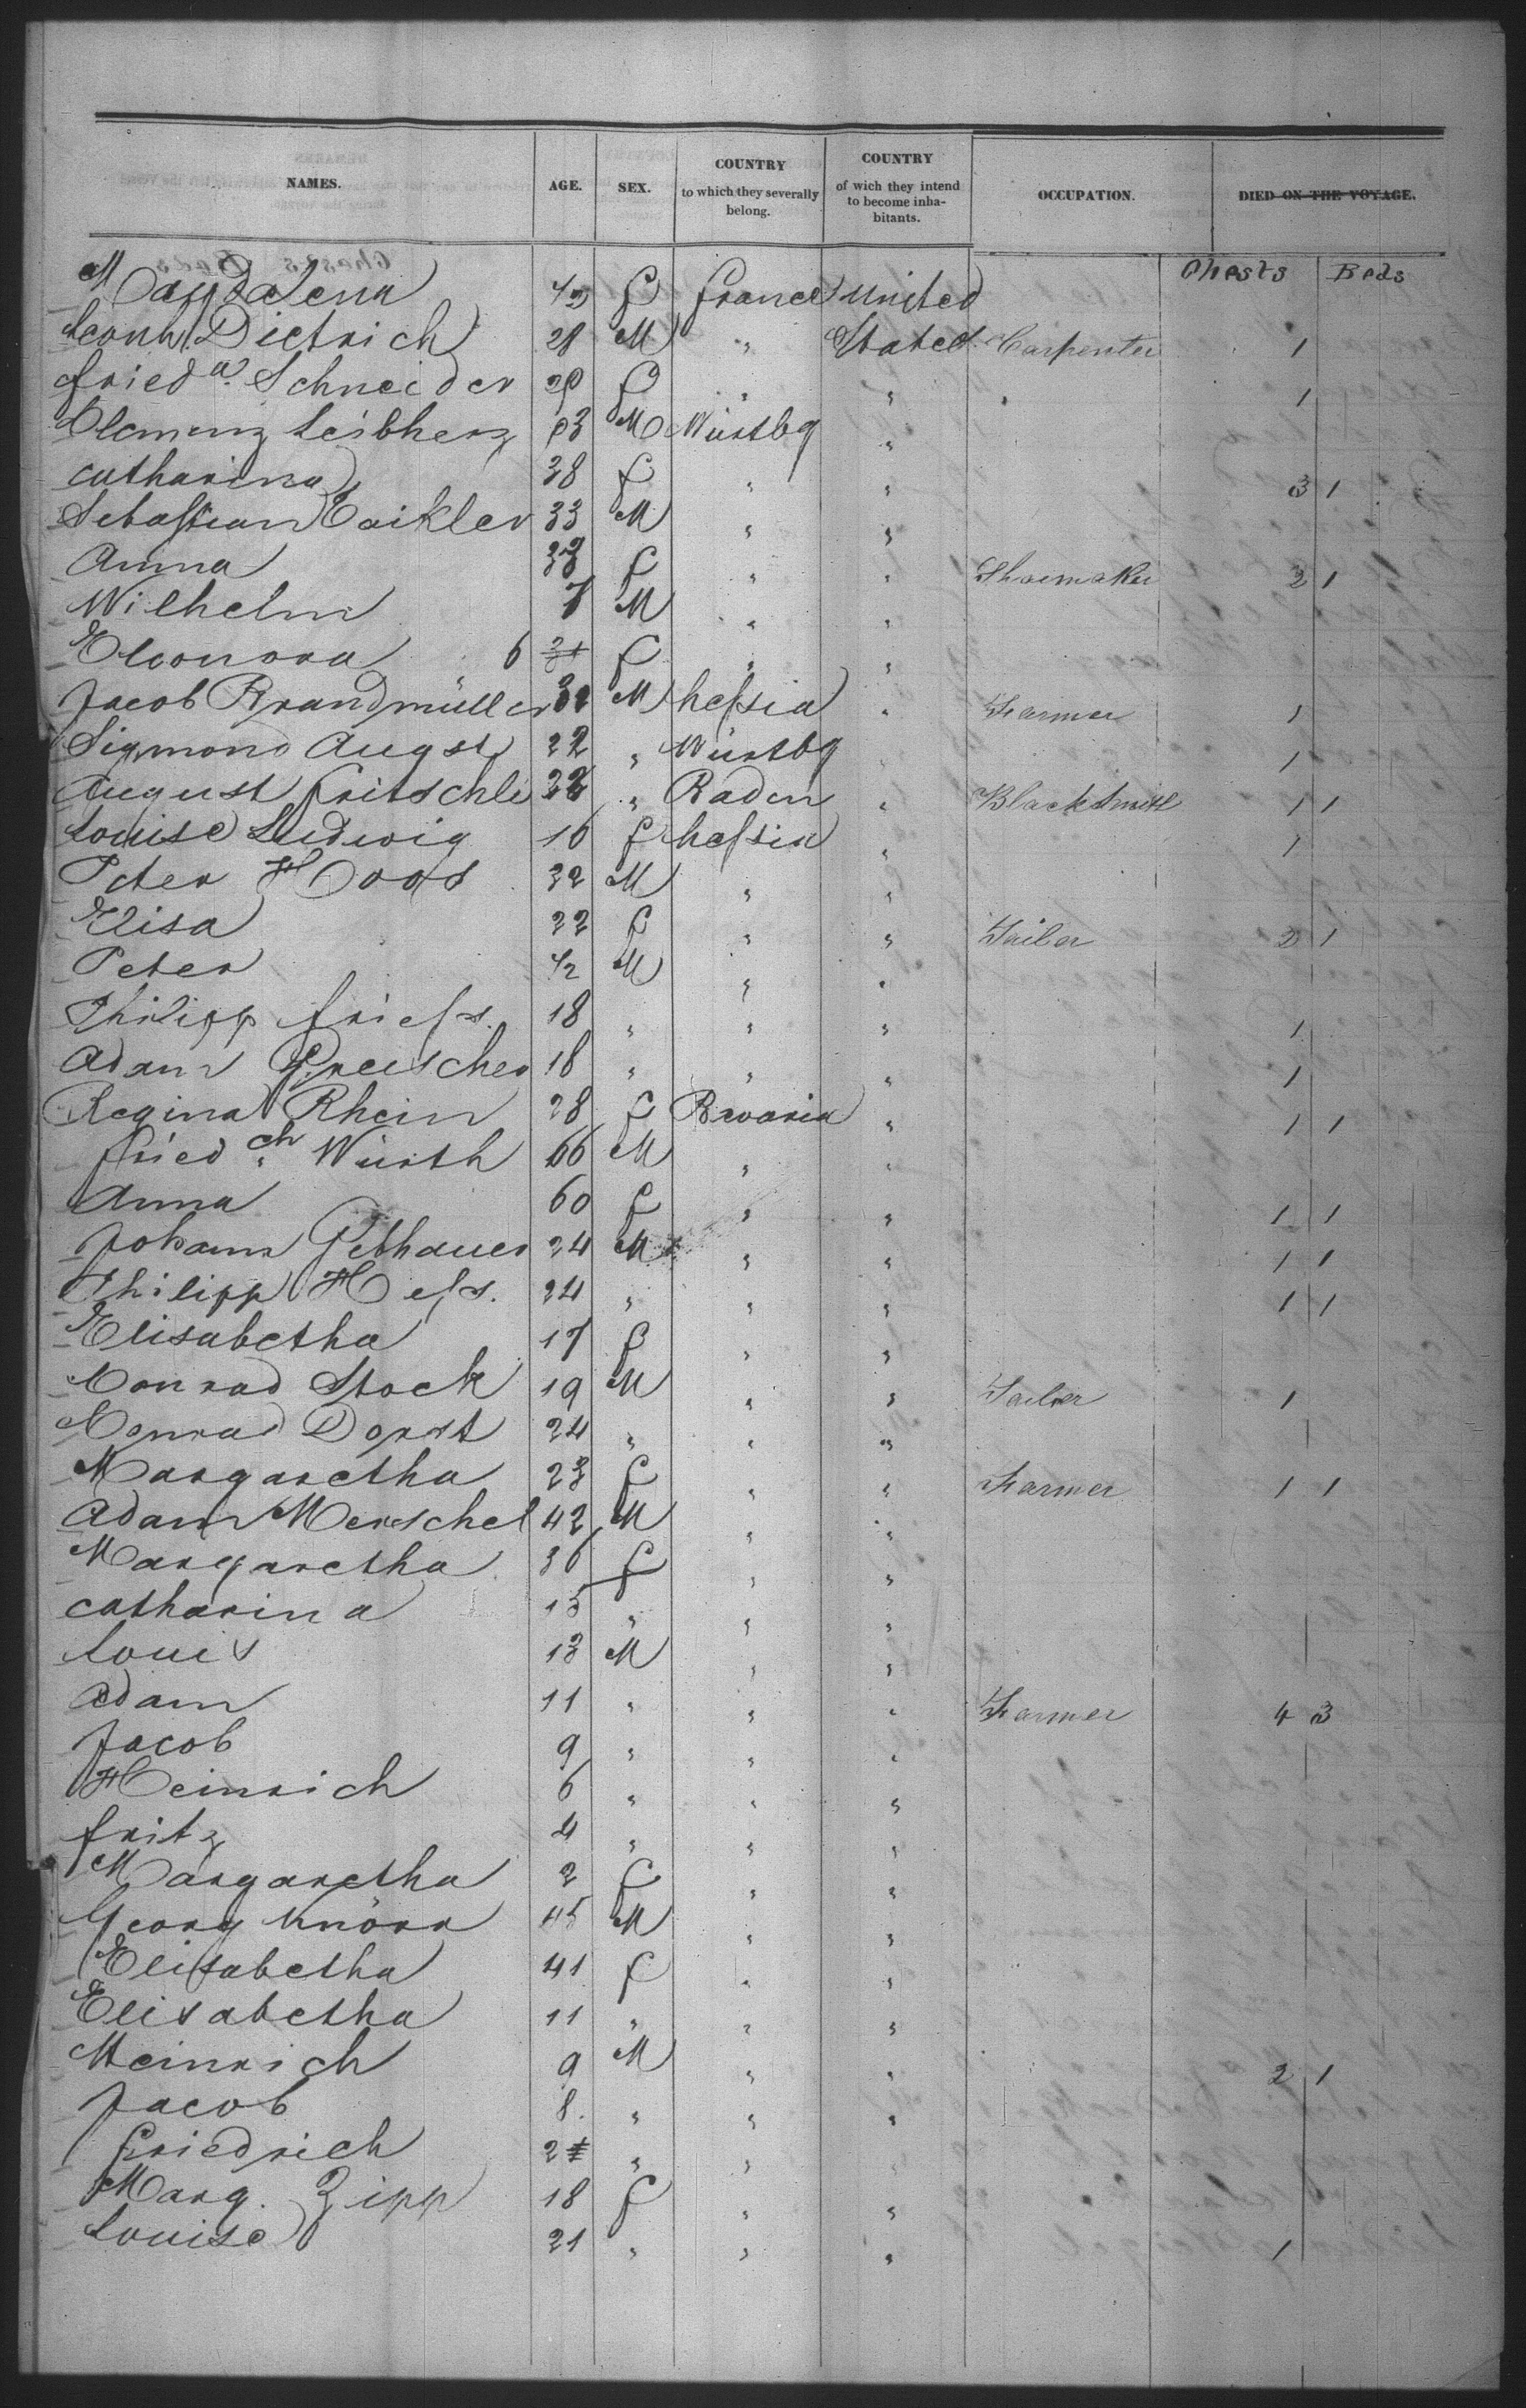 NAMES. AGE. SEX. COUNTRY to which they severally belong. COUNTRY of wich they intend to become inhabitants. OCCUPATION. DIED ON THE VOYAGE.
Chests Beds
Magdalena 1/2 f France United
Leonh Dietrich 28 M " States Carpenter 1
Fried a. Schneider f " " 1
Clemenz Leibherz M Würtbg "
Catharina 38 f " " 3 1
Sebastian 33 M " "
Anna 33 f " " Shoemaker 2 1
Wilhelm 7 M " "
Eleonora 6 f " "
Jacob Brandmüller 32 M Hessia " Farmer 1
Sigmond August 22 " Würtbg " 1
August Fritschle " Baden " Blacksmith 1 1
Louise Ludwig 16 f Hessia " 1
Peter Hoos 32 M " "
Elisa 22 f " " Tailor 2 1
Peter 1/2 M " "
Philipp Friess. 18 " " " 1
Adam Greischer 18 " " " 1
Regina Rhein 28 f Bavaria " 1 1
Fried ch. Würth 66 M " "
Anna 60 f " " 1 1
Johann Gebhauer 24 M " " 1 1
Philipp Hess. 24 " " " 1 1
Elisabetha 17 f " "
Conrad Stock 19 M " " Tailor 1
Conrad Dorst 24 " " "
Margaretha 23 f " " Farmer 1 1
Adam Merschel 42 M " "
Margaretha 36 f " "
Catharina 15 " " "
Louis 13 M " "
Adam 11 " " " Farmer 4 3
Jacob 9 " " "
Heinrich 6 " " "
Fritz 4 " " "
Margaretha 2 f " "
Georg Knörr 45 M " "
Elisabetha 41 f " "
Elisabetha 11 " " "
Heinrich 9 M " " 2 1
Jacob 8. " " "
Friedrich 2 " "
Marg. Zipp 18 f " "
Louise 21 " " " 1